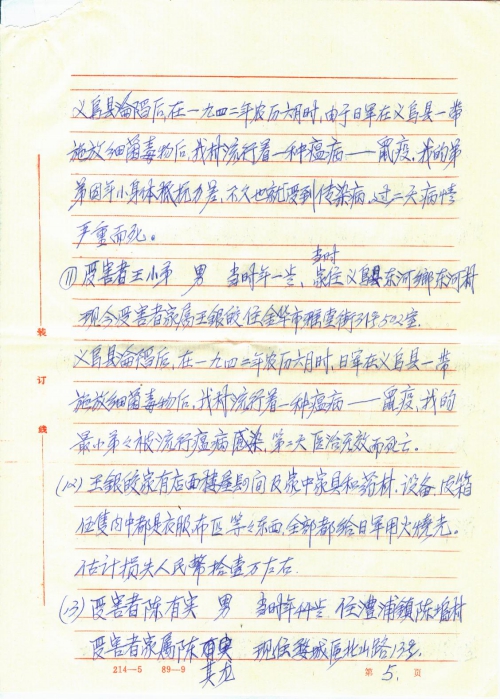 义乌县沦陷后,在一九四二年农历六月时,由于日军在义乌县一带
施放细菌毒物后,我村流行着一种瘟病——鼠疫。我的弟
弟因年小身体抵抗力差,不久也就受到传染病。过二天病情
严重而死。
当时
(11) 受害者王小弟 男 当时年一岁、家住义乌县东河乡东河村
现今受害者家属王银皎住金华市 街3号502室.
义乌县沦陷后,在一九四二年农历六月时,日军在义乌县一带
施放细菌毒物后,我村流行着一种瘟病——鼠疫,我的
最小弟々被流行瘟病感染,第二天医治无效而死亡。
(12) 王银皎家有店面 间及家中家具和药材、设备、皮箱
伍隻内中都是衣服、布匹等々东西,全部都给日军用火烧光。
估计损失人民币拾壹万左右.
(13) 受害者陈有实 男 当时年 岁 住澧浦镇陈塘村
受害者家属陈 其龙 现住婺城区北山路13号.
装
订
线
214—5 89—9
第 5. 页